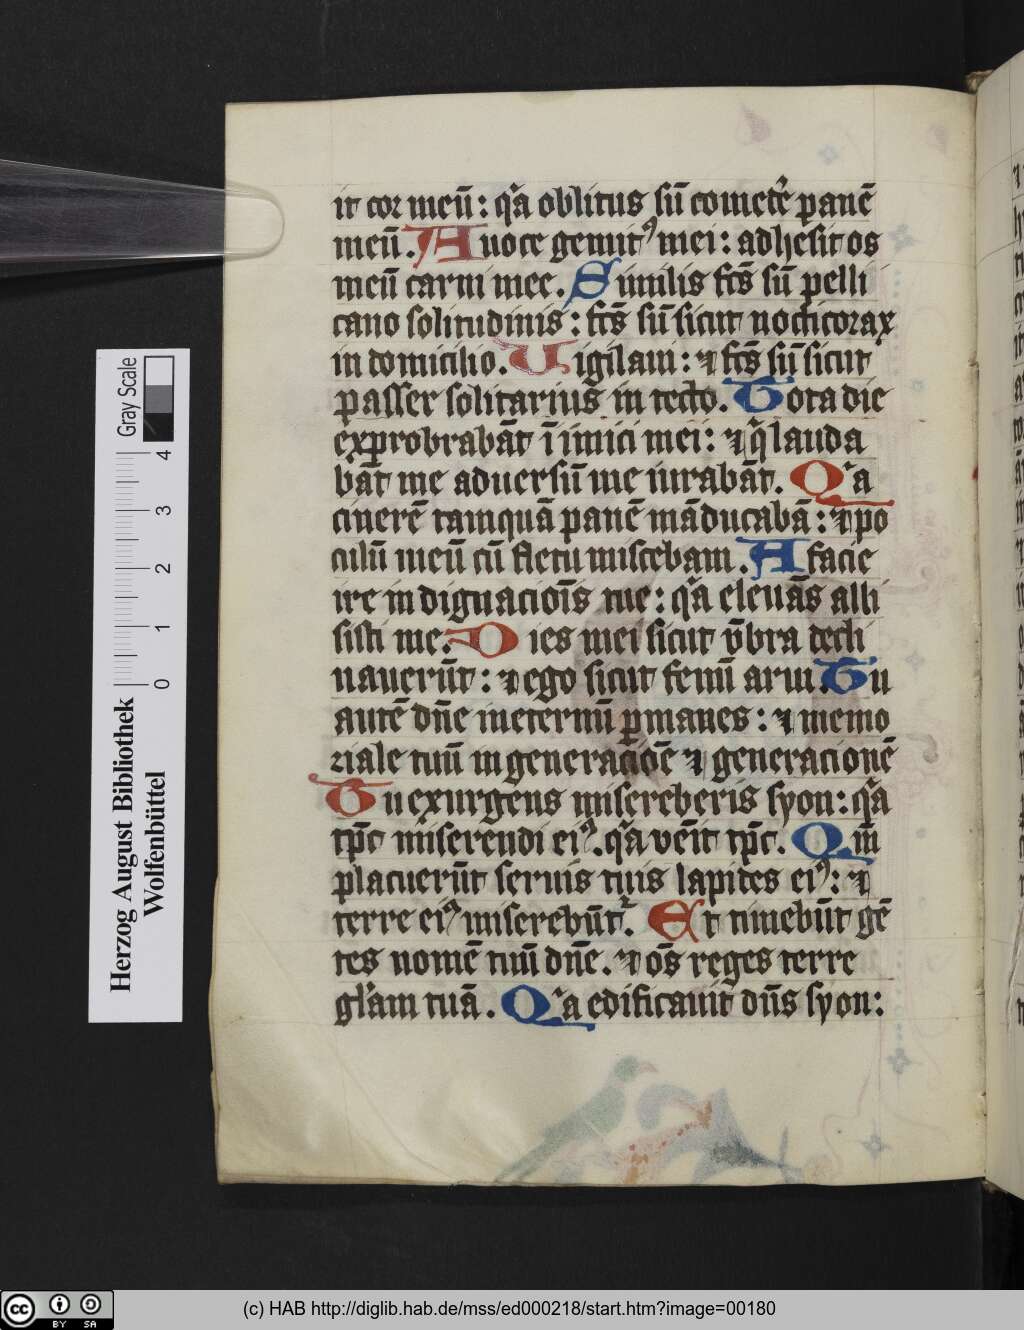 it cor meū : qͣa oblitus sū comet̾e panē
meū . A uoce gemitꝰ mei : adhesit os
meū carni mee . Similis fc̄s sū pelli
cano solitudinis : fc̄s sū sicut nocticorax
in domicilio . Uigilaui : ⁊ fc̄s sū sicut
passer solitarius in tecto . Tota die
exprobrabāt īimici mei : ⁊ q̄ lauda
bāt me aduersū me iurabāt . Qͣa
cinerē tamquā panē māducabā : ⁊ po
culū meū cū fletu miscebam . A facie
ire indignacioīs tue : qͣa eleuās alli
sisti me . Dies mei sicut v̄bra decli
nauerūt : ⁊ ego sicut fenū arui . Tu
autē dn̄e ineternū ꝑmanes : ⁊ memo
riale tuū ingeneracioē ⁊ generacionē
Tu exurgens misereberis syon : qͣa
tp̄c miserendi eiꝰ . qͣa vēit tp̄c . Qm̄
placuerūt seruis tuis lapites eiꝰ : ⁊
terre eiꝰ miserebūt᷑ . Et timebūt gē
tes nomē tuū dn̄e . ⁊ os̄ reges terre
gl̄am tuā . Qͣa edificauit dn̄s syon :
Herzog August Bibliothek
Wolfenbüttel
Gray Scale
0 1 2 3 4
cc BY SA
(c) HAB http://diglib.hab.de/mss/ed000218/start.htm?image=00180